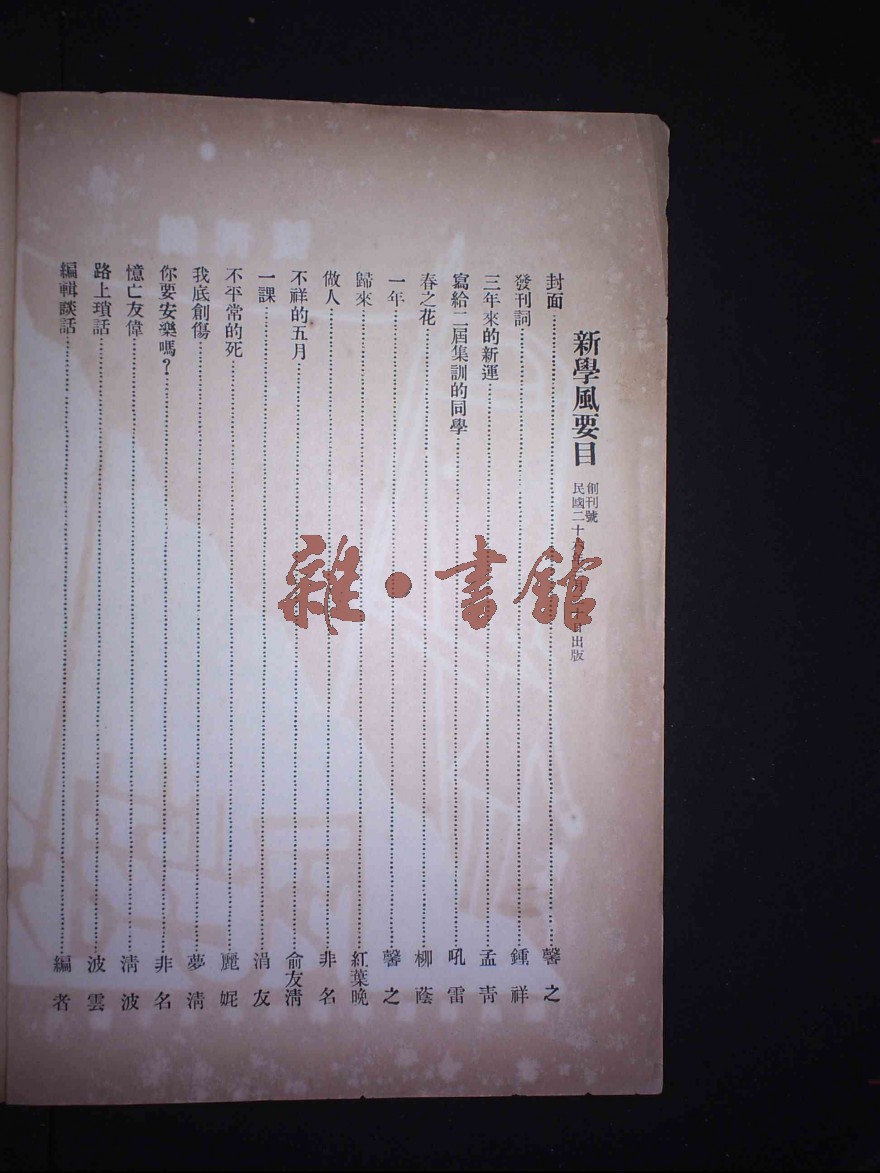 新學風要目
創刊號
民國二十 出版
封面 馨之
發刊詞 鍾祥
三年來的新運 孟青
寫給二屆集訓的同學 吼雷
春之花 柳蔭
一年 馨之
歸來 紅葉晚
做人 非名
不祥的五月 俞友清
一課 涓友
不平常的死 麗妮
我底創傷 夢清
你要安樂嗎？ 非名
憶亡友偉 清波
路上瑣話 波雲
編輯談話 編者
雜·書館